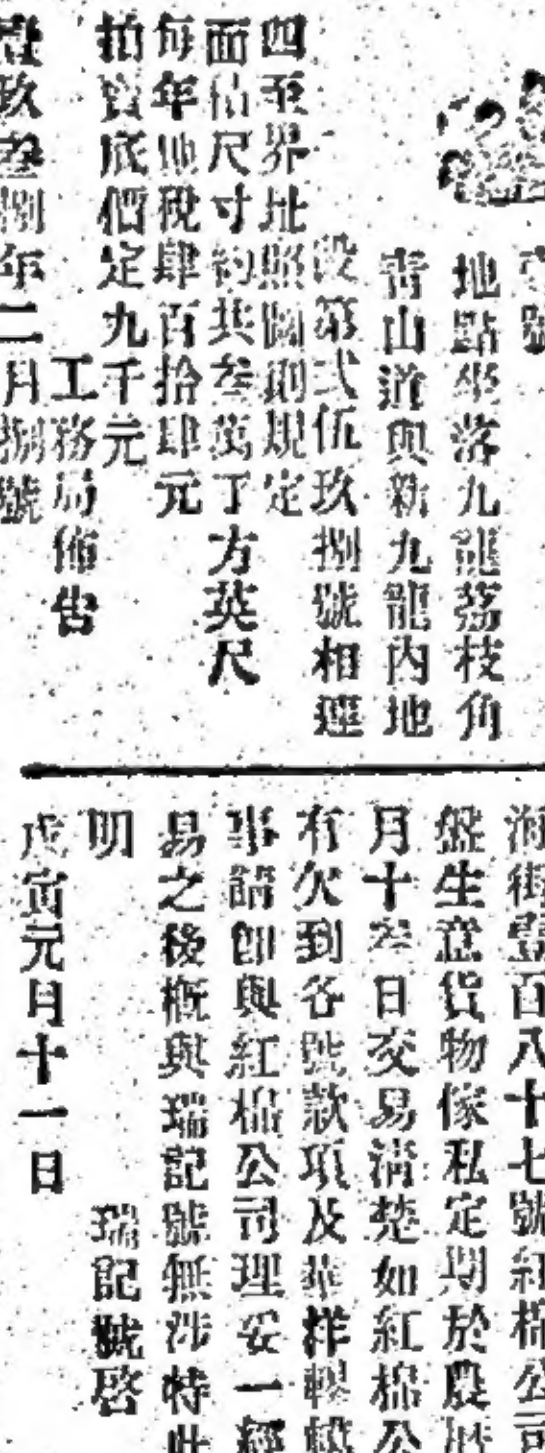 地點坐落九龍荔枝角
青山道與新九龍內地
段第弍伍玖捌號相連
四至界址照圖則規定
面積尺寸約共叁萬了方英尺
每年地稅肆百拾肆元
拍賣底價定九千元
工務局佈告
壹玖叁捌年二月捌號
海街壹百八十七號紅棉公司
盤生意貨物傢私定期於農曆
月十叁日交易清楚如紅棉公
有欠到各號款項及華洋轇轕
事請卽與紅棉公司理妥一經
易之後概與瑞記號無涉特此
明
瑞記號啓
戊寅元月十一日